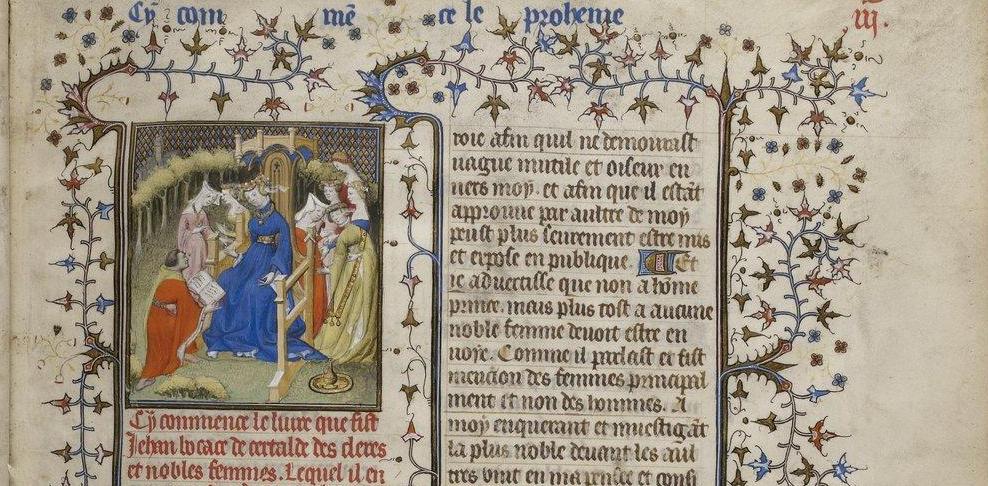 Cy commence le proheme
iij.
Cy commence le livre que fist
Jehan bocace de certalde des cleres
et nobles femmes. Lequel il en
voie afin quil ne demourast
vague inutile et oiseux en
uers moy. et afin que il estant
approuue par aultre de moy
peust plus seurement estre mis
et expose en publique. Et
ie aduertisse que non a home
prince. mais plus tost a aucune
noble femme deuoit estre en
uoye. Comme il parlast et fist
mencion des femmes principal
ment et non des hommes. A
moy enquerant et inuestigant
la plus noble deuant les aul
tres vint en ma pensee et consi